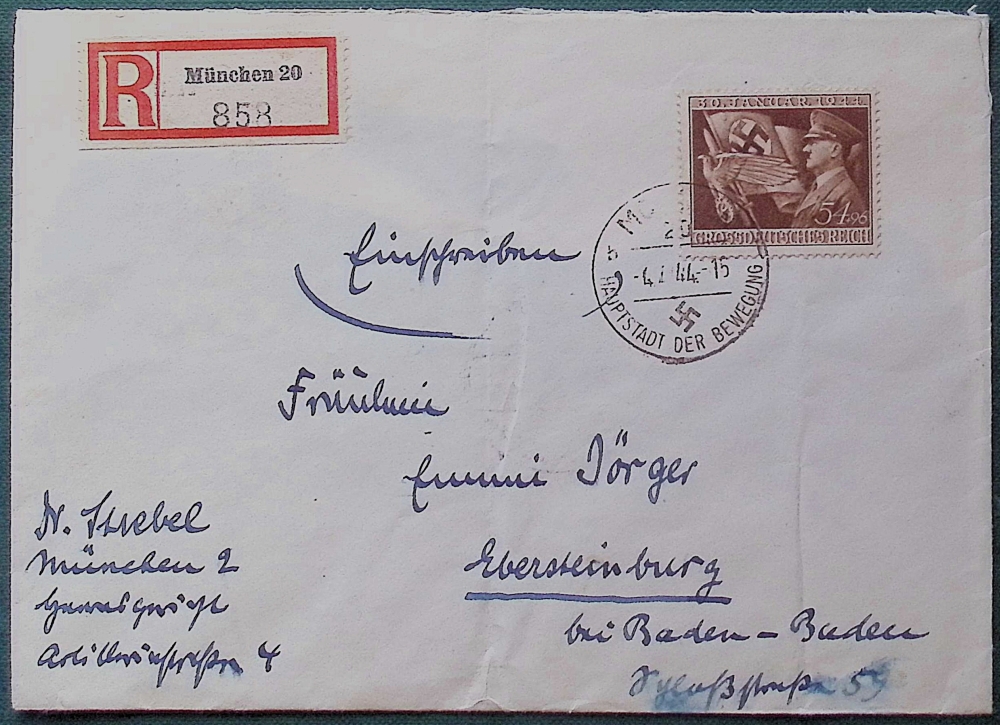 R
München 20
858
30. JANUAR 1944
54+96
GROSSDEUTSCHES REICH
20
-4.2.44.-16
HAUPTSTADT DER BEWEGUNG
Einschreiben
Fräulein
Emmi Jörger
Ebersteinburg
bei Baden-Baden
Schloßstraße 59
Dr. Striebel
München 2
Artilleriestraße 4